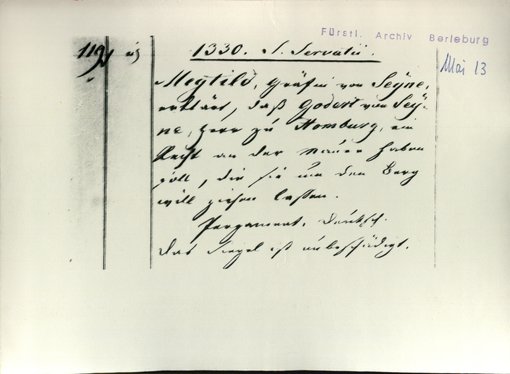 Fürstl. Archiv Berleburg
119, a)
1330. S. Servatii.
Mai 13
Megtild, Gräfin von Seyne,
erklärt, daß Godert von Sey-
ne, Herr zu Homburg, ein
Recht an der Mauer haben
soll, die sie um den Berg
will ziehen lassen.
Pergament. Deutsch.
Das Siegel ist unbeschädigt.